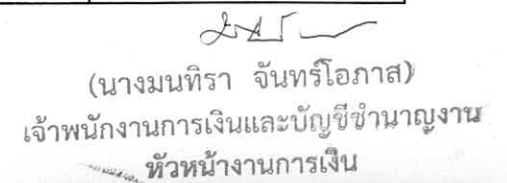 (นางมนทิรา จันทร์โอภาส)
เจ้าพนักงานการเงินและบัญชีชำนาญงาน
หัวหน้างานการเงิน